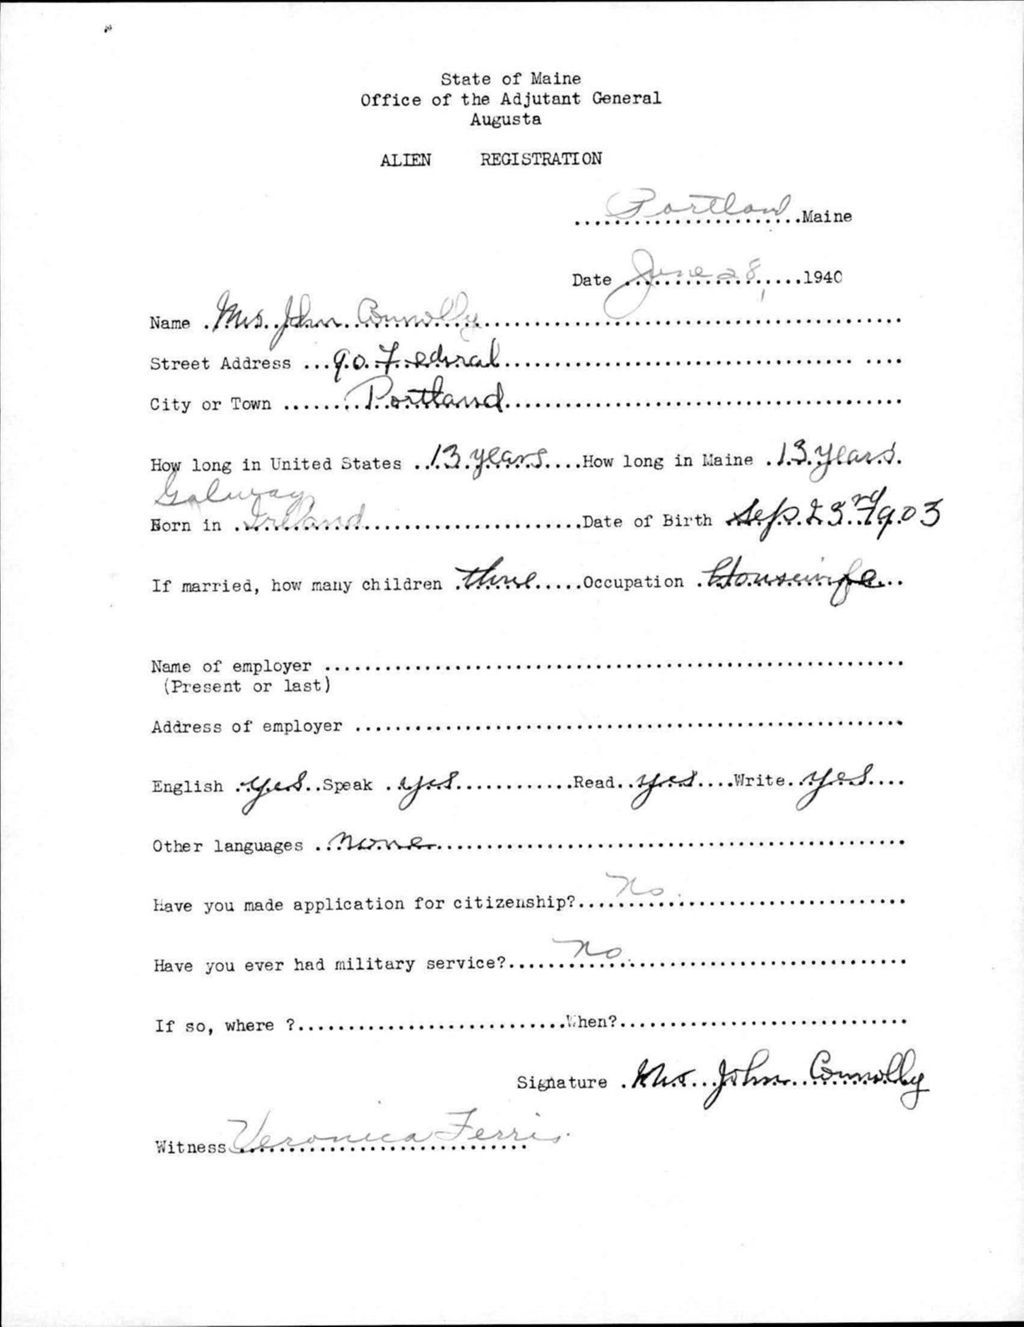 State of Maine
Office of the Adjutant General
Augusta
ALIEN REGISTRATION
Portland Maine
Date June 28, 1940
Name Mrs. John Connolly
Street Address 90 Federal
City or Town Portland
How long in United States 13 years How long in Maine 13 years.
Galway
Born in Ireland Date of Birth Sep. 23rd 1903
If married, how many children three Occupation Housewife
Name of employer
(Present or last)
Address of employer
English yes Speak yes Read yes Write yes
Other languages none
Have you made application for citizenship? No
Have you ever had military service? No
If so, where ? When?
Signature Mrs. John Connolly
Witness Veronica Ferris